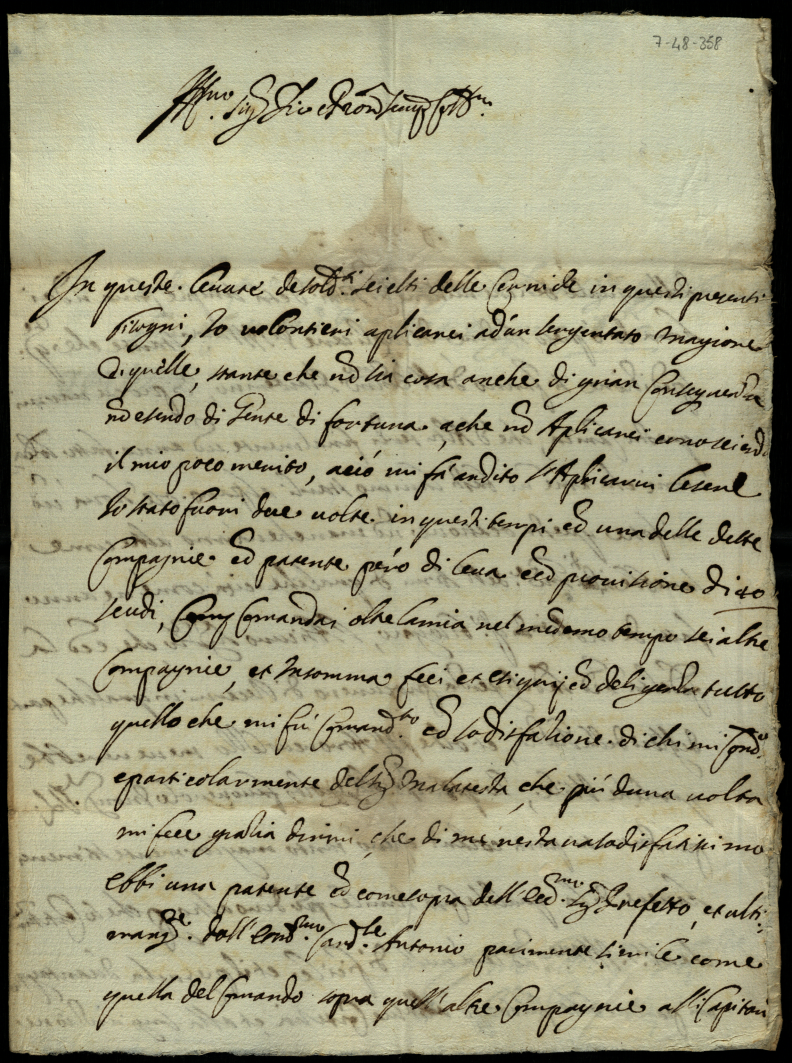 7-48-358
Ill.mo Sig.r Zio e Pron
In queste levate de sold.ti scielti delle Cernide in questi presenti
bisogni, Io volontieri aplicarei ad un sergentato magiore
di quelle, stante che nō sia cosa anche di grian Consequenza
nō esendo di gente di fortuna, ache nō Aplicarei conosciendo
il mio poco merito, aciò mi fà ardito l'Aplicarvi l'esere
Io stato fuori due volte in questi tempi cō una delle dette
Compagnie cō patente però di leva e cō provisione di 40
scudi, Comandai oltre la mia nel medemo tempo sei altre
Compagnie, et Insomma feci et esiguij cō deligenza tutto
quello che mi fù Comand.to cō sodisfatione di chi mi Cond.e
e particolarmente del Sig.r Malatesta, che più d'una volta
mi fece gratia dirmi, che di me restava sodisfatissimo
ebbi una patente cō come sopra dell'ecc.mo Sig.r Prefetto, et ulti
mam.te dall'em.mo Card.le Antonio parimente simile come
quella del Comando sopra quell'altre Compagnie alli Capitani